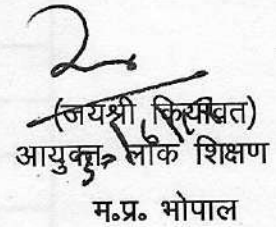 (जयश्री कियावत)
आयुक्त, लोक शिक्षण
म.प्र. भोपाल